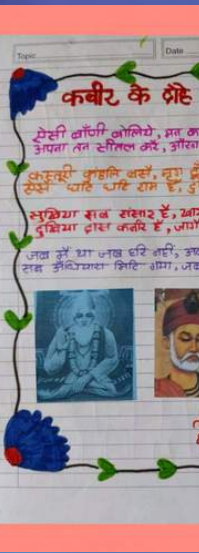 Topic
Date
कबीर के दोहे
ऐसी बाँणी बोलिये, मन का
अपना तन सीतल करै, औरन
कस्तूरी कुंडलि बसै, मृग
ऐसैं घटि घटि राम है,
सुखिया सब संसार है,
दुखिया दास कबीर है, जागै
जब मैं था तब हरि नहीं, अब
सब अँधियारा मिटि गया, जब